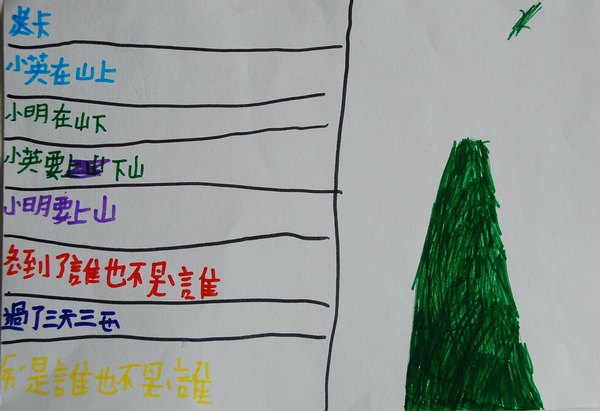 卡
小英在山上
小明在山下
小英要下山
小明要上山
到了誰也不見誰
過了三天三
是誰也不見誰